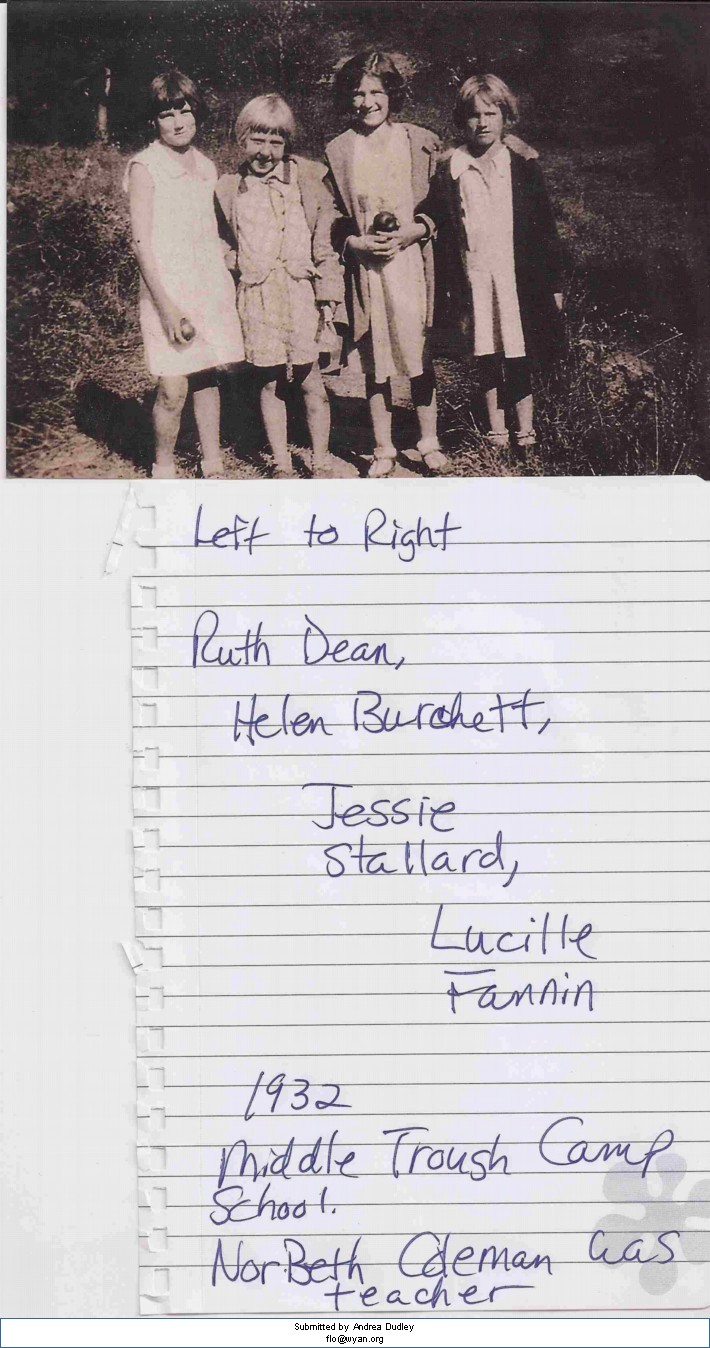 Left to Right
Ruth Dean,
Helen Burchett,
Jessie
Stallard,
Lucille
Fannin
1932
Middle Trough Camp
School.
NorBeth Coleman was
teacher
Submitted by Andrea Dudley
flo@wyan.org